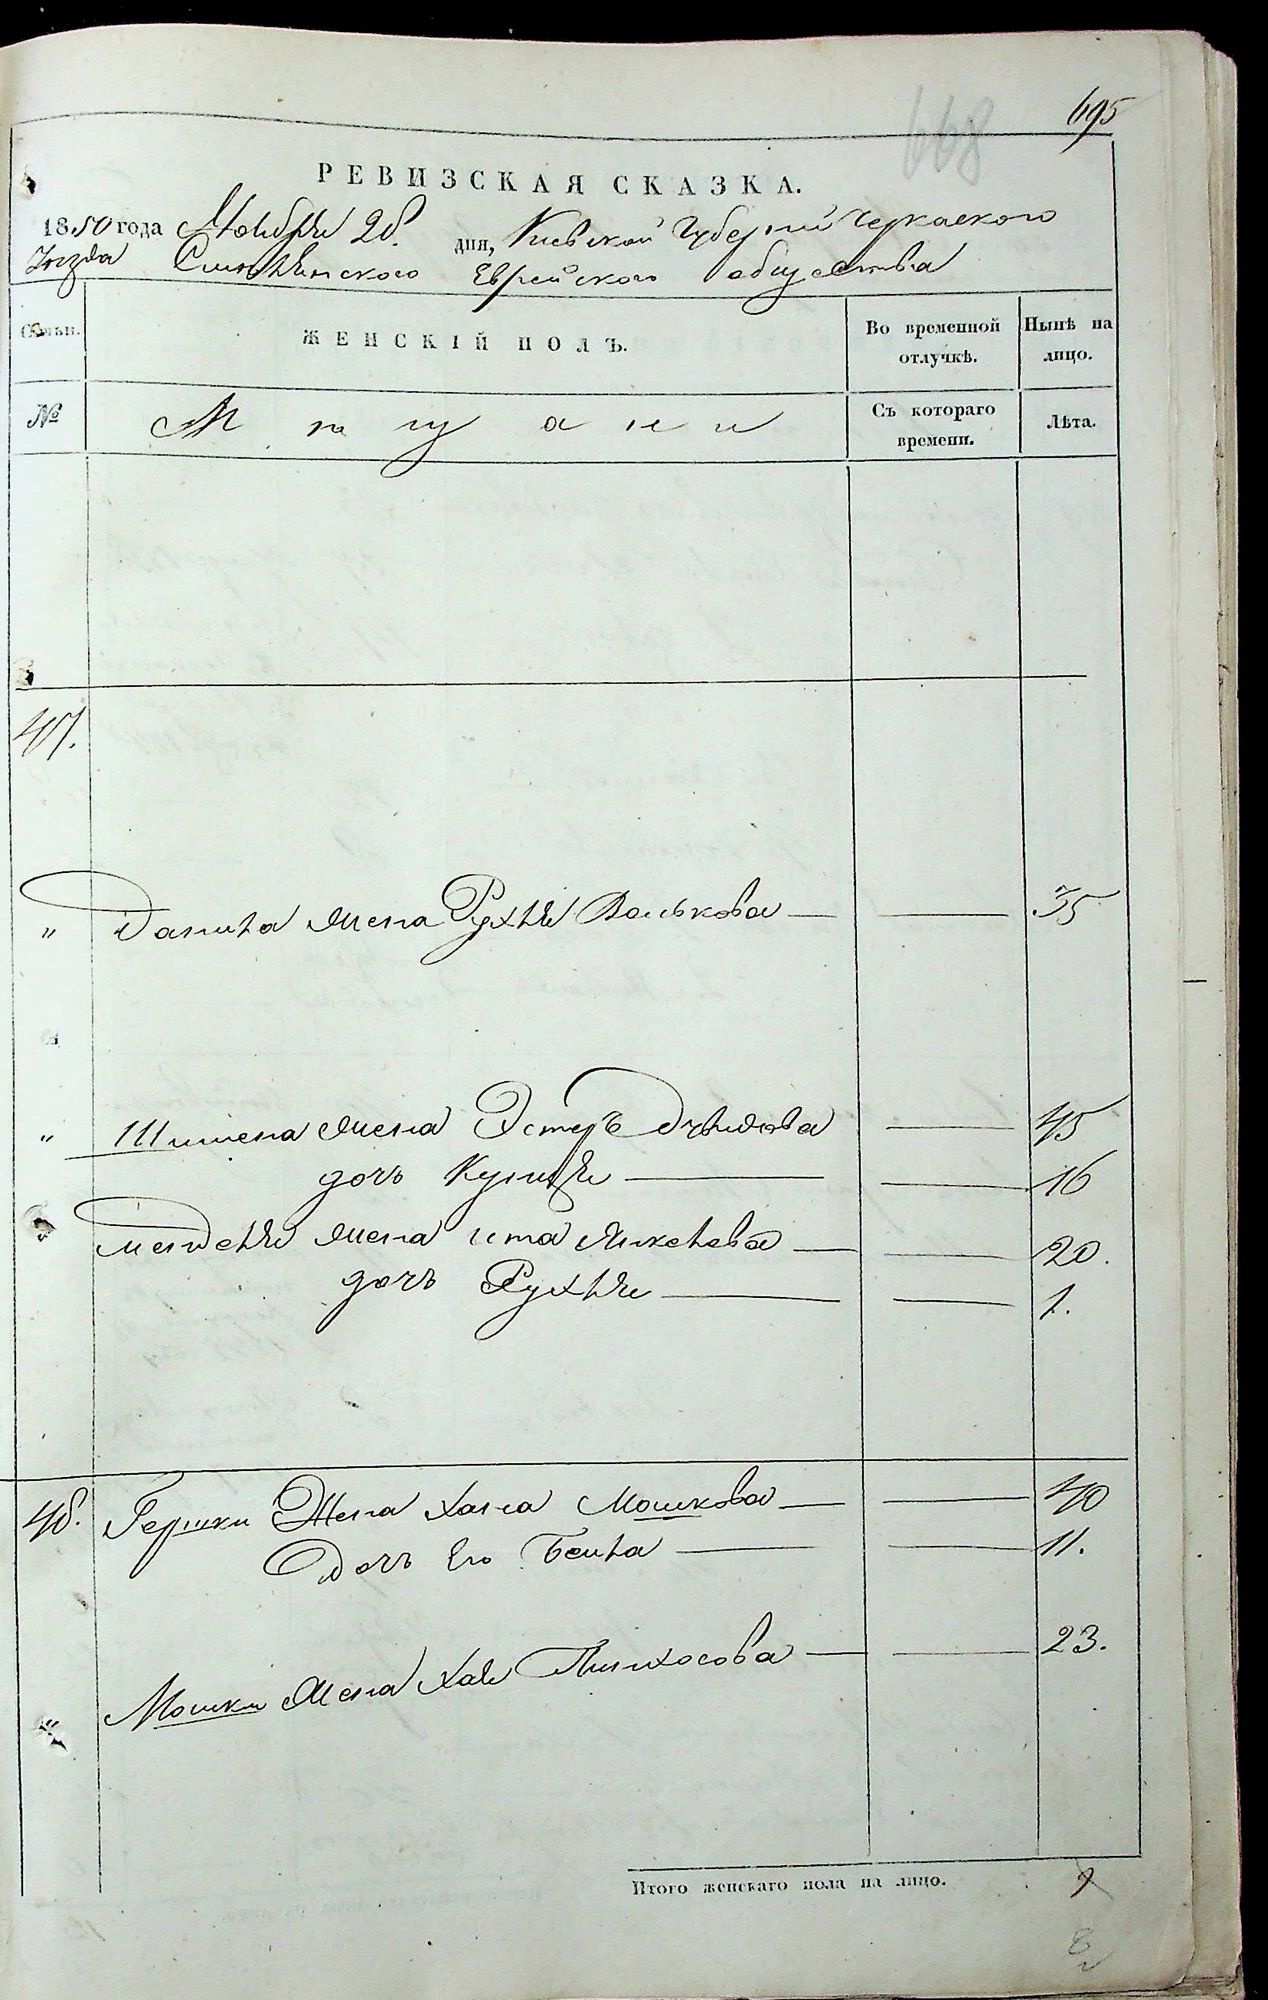 695
668
РЕВИЗСКАЯ СКАЗКА.
1850 года Ноября 28. дня, Киевской Губернии Черкаского
Уезда Смелянского Еврейского общества
Семьи. ЖЕНСКІЙ ПОЛЪ. Во временной отлучкѣ. Нынѣ на лицо.
№ Мещане Съ котораго времени. Лѣта.
47.
" Данила жена Рухля Волькова — — 35
" Шимона жена Эстеръ — 45
дочь — — 16
Менделя жена Ита Янкелева — — 20.
дочь Рухля — — 1.
48. Гершки Жена Хана Мошкова — — 40
Дочь Его Бейла — — 11.
" Мошки жена Хая Пинхосова — — 23.
Итого женскаго пола на лицо. 9
8